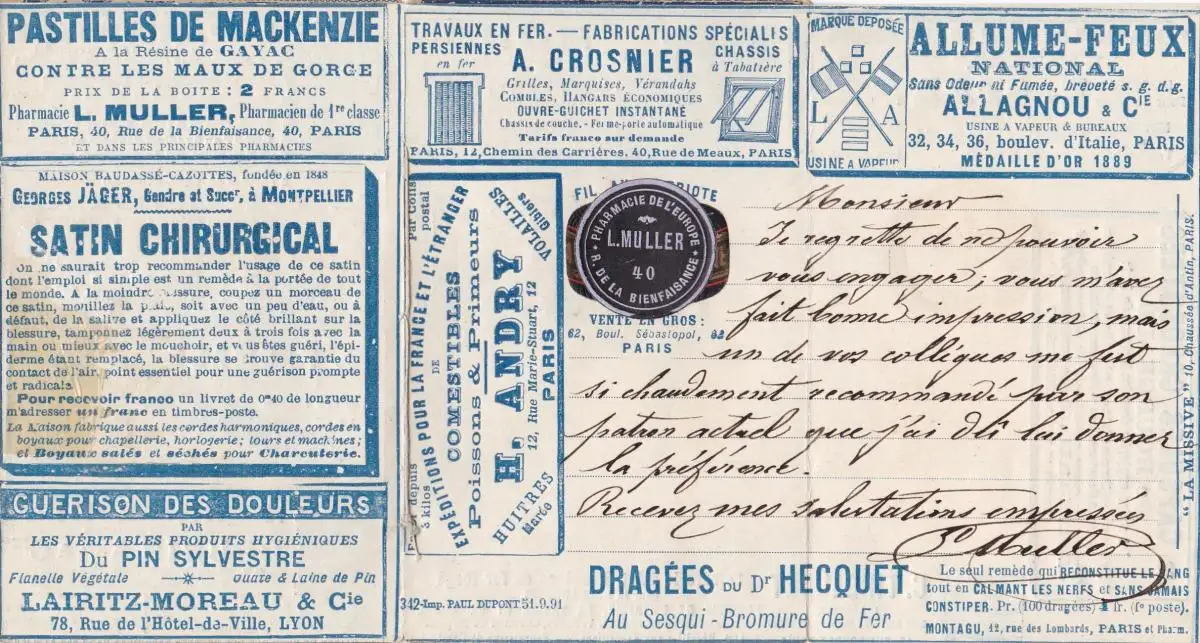 PASTILLES DE MACKENZIE
A la Résine de GAYAC
CONTRE LES MAUX DE GORGE
PRIX DE LA BOITE : 2 FRANCS
Pharmacie L. MULLER, Pharmacien de 1re classe
PARIS, 40, Rue de la Bienfaisance, 40, PARIS
ET DANS LES PRINCIPALES PHARMACIES
MAISON BAUDASSÉ-CAZOTTES, fondée en 1848
GEORGES JÄGER, Gendre et Succr, à MONTPELLIER
SATIN CHIRURGICAL
On ne saurait trop recommander l'usage de ce satin
dont l'emploi si simple est un remède à la portée de tout
le monde. A la moindre coupez un morceau de
ce satin, mouillez la soit avec un peu d'eau, ou à
défaut, de la salive et appliquez le côté brillant sur la
blessure, tamponnez légèrement deux à trois fois avec la
main ou mieux avec le mouchoir, et vous êtes guéri, l'épi-
derme étant remplacé, la blessure se trouve garantie du
contact de l'air, point essentiel pour une guérison prompte
et radicale
Pour recevoir franco un livret de 0m40 de longueur
m'adresser un franc en timbres-poste.
La Maison fabrique aussi les cordes harmoniques, cordes en
boyaux pour chapellerie, horlogerie; tours et machines;
et Boyaux salés et séchés pour Charcuterie.
GUERISON DES DOULEURS
PAR
LES VÉRITABLES PRODUITS HYGIÉNIQUES
DU PIN SYLVESTRE
Flanelle Végétale ouate & Laine de Pin
LAIRITZ-MOREAU & Cie
78, Rue de l'Hôtel-de-Ville, LYON
TRAVAUX EN FER. — FABRICATIONS SPÉCIALES
PERSIENNES
en fer
A. CROSNIER
CHASSIS
à Tabatière
Grilles, Marquises, Vérandahs
COMBLES, HANGARS ÉCONOMIQUES
OUVRE-GUICHET INSTANTANÉ
Chassis de couche. - Ferme-porte automatique
Tarifs franco sur demande
PARIS, 12, Chemin des Carrières, 40, Rue de Meaux, PARIS
MARQUE DÉPOSÉE
L A
USINE A VAPEUR
ALLUME-FEUX
NATIONAL
Sans Odeur ni Fumée, breveté s. g. d. g.
ALLAGNOU & CIE
USINE A VAPEUR & BUREAUX
32, 34, 36, boulev. d'Italie, PARIS
MÉDAILLE D'OR 1889
Par Colis postal
depuis 3 kilos
EXPÉDITIONS POUR LA FRANCE ET L'ÉTRANGER
DE
COMESTIBLES
Poissons & Primeurs
VOLAILLES
Gibiers
H. ANDRY
HUITRES
Marée
12, Rue Marie-Stuart, 12
PARIS
FIL
PHARMACIE DE L'EUROPE
L. MULLER
40
R. DE LA BIENFAISANCE
VENTE EN GROS :
62, Boul. Sébastopol, 62
PARIS
Monsieur
Je regrette de ne pouvoir
vous engager; vous m'avez
fait bonne impression, mais
un de vos collègues me fut
si chaudement recommandé par son
patron actuel que j'ai dû lui donner
la préférence.
Recevez mes salutations empressées
L Muller
"LA MISSIVE" 10, Chaussée d'Antin, PARIS.
342-Imp. PAUL DUPONT 51.9.91
DRAGÉES DU Dr HECQUET
Au Sesqui-Bromure de Fer
Le seul remède qui RECONSTITUE LE SANG
tout en CALMANT LES NERFS et SANS JAMAIS
CONSTIPER. Pr. (100 dragées) fr. (fo poste).
MONTAGU, 12, rue des Lombards, PARIS et Pharm.